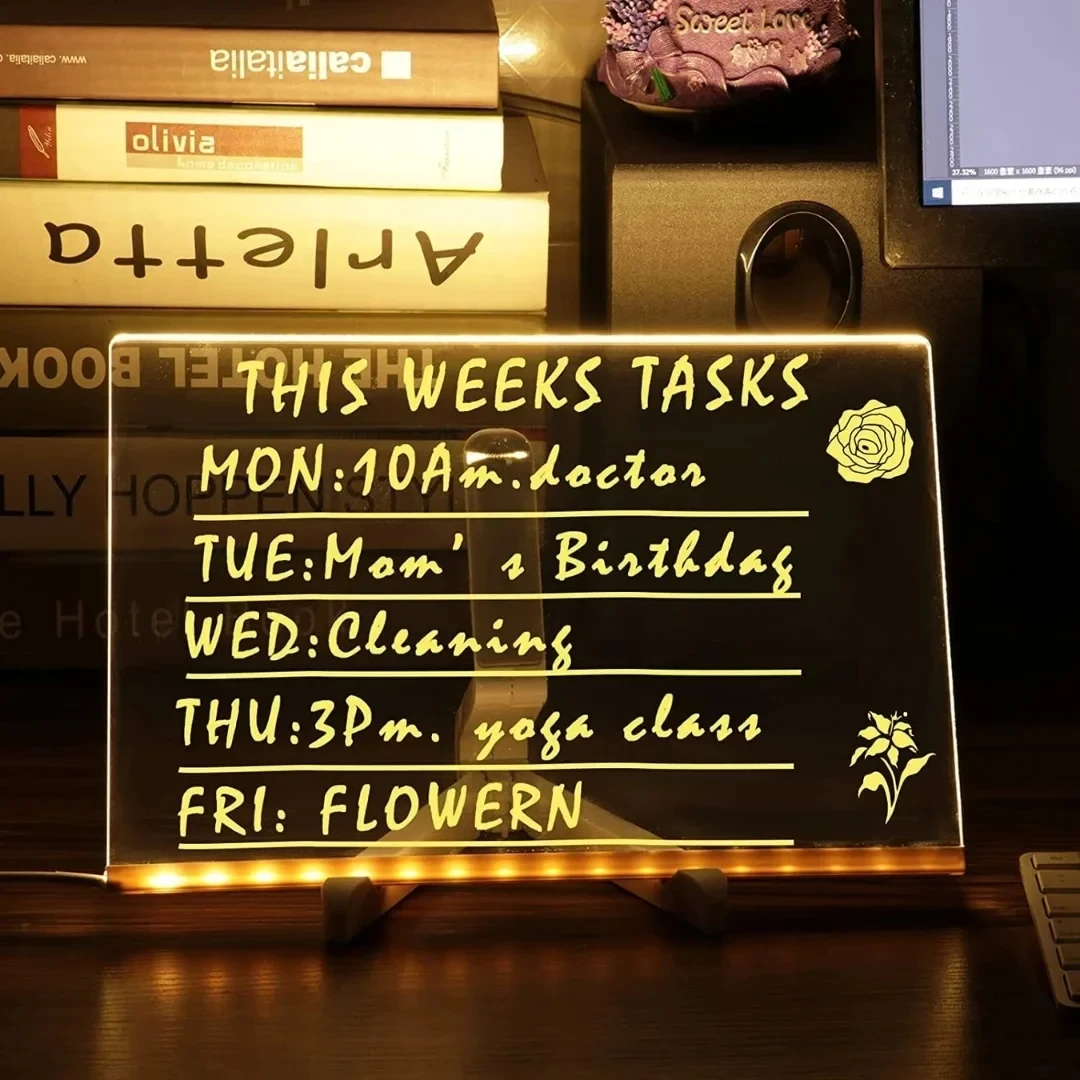 www.caliaitalia.
caliaitalia
olivia
home decorating
Arletta
THE HOTEL BOOK
LLY HOPPEN STY
e Hotel Book
Sweet Love
37.32% 1600 像素 x 1600 像素 (96 ppi)
THIS WEEKS TASKS
MON:10Am.doctor
TUE:Mom' s Birthday
WED:Cleaning
THU:3Pm. yoga class
FRI: FLOWERN